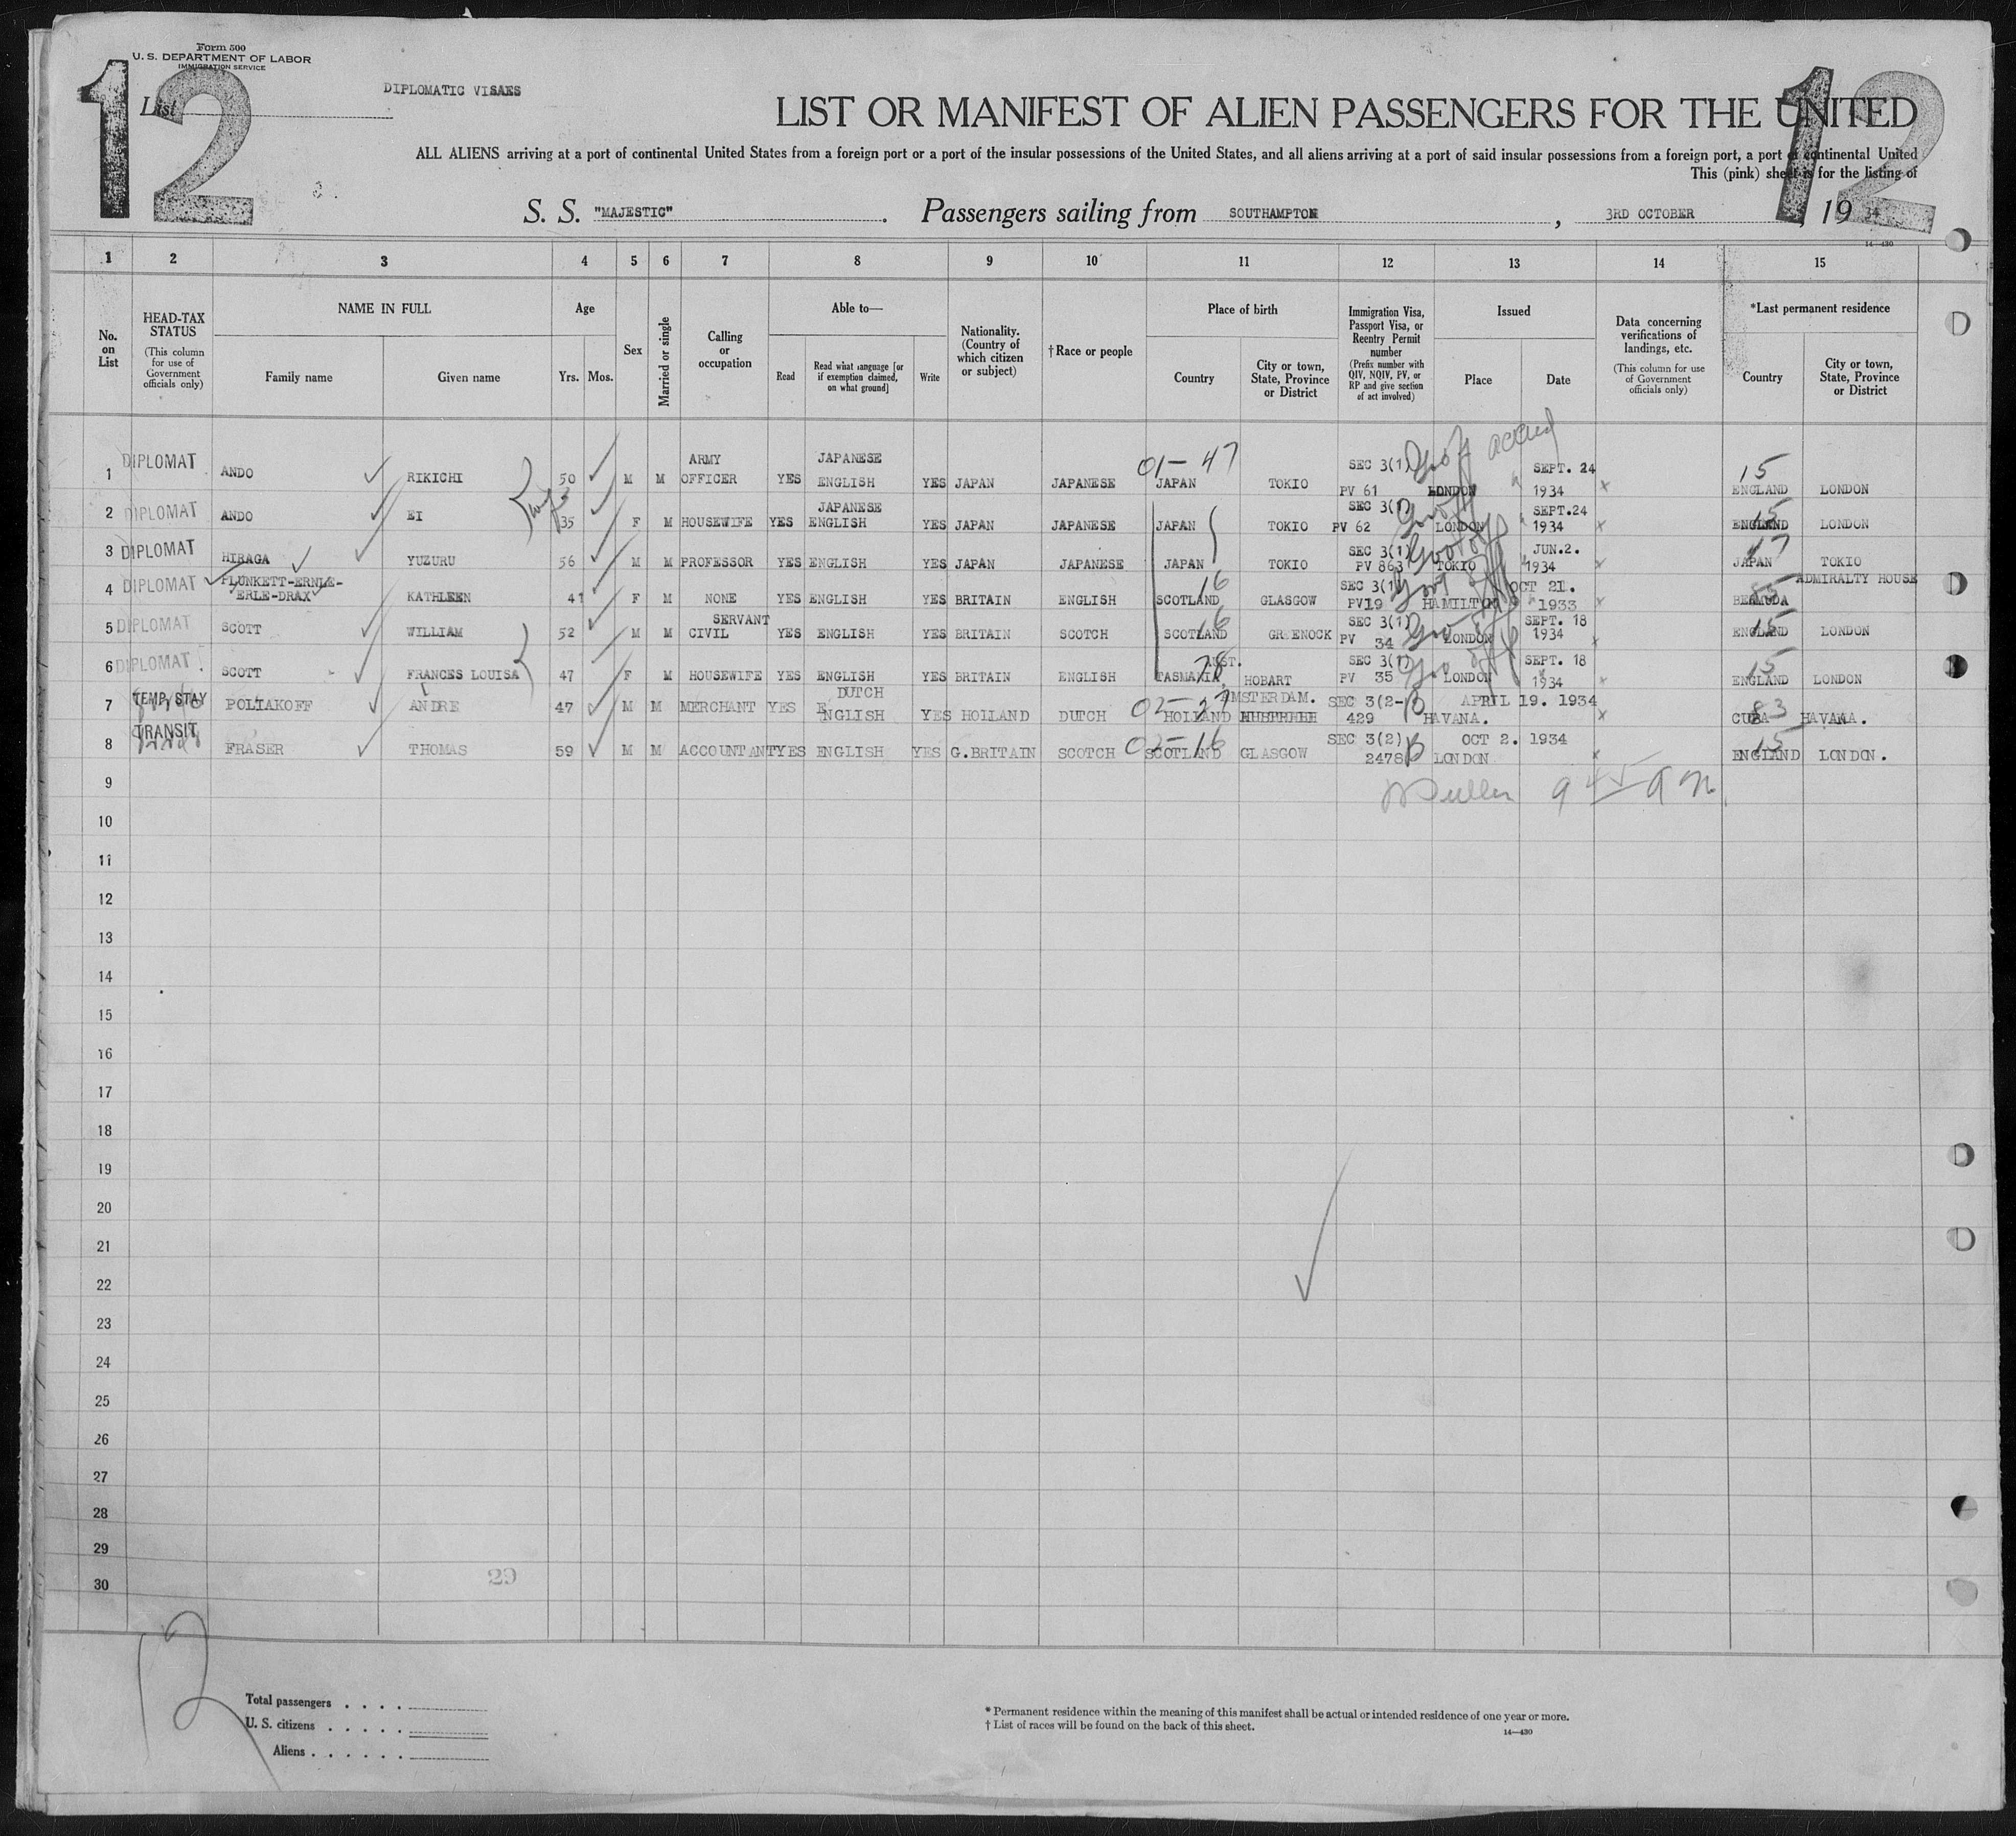 Form 500
U. S. DEPARTMENT OF LABOR
IMMIGRATION SERVICE
12
List
DIPLOMATIC VISAES
12
LIST OR MANIFEST OF ALIEN PASSENGERS FOR THE UNITED
ALL ALIENS arriving at a port of continental United States from a foreign port or a port of the insular possessions of the United States, and all aliens arriving at a port of said insular possessions from a foreign port, a port of continental United
This (pink) sheet is for the listing of
S. S. "MAJESTIC" . Passengers sailing from SOUTHAMPTON , 3RD OCTOBER , 19 34
14—430
1 2 3 4 5 6 7 8 9 10 11 12 13 14 15
No. on List
HEAD-TAX STATUS (This column for use of Government officials only)
NAME IN FULL
Family name Given name
Age
Yrs. Mos.
Sex
Married or single
Calling or occupation
Able to—
Read
Read what language [or if exemption claimed, on what ground]
Write
Nationality. (Country of which citizen or subject)
†Race or people
Place of birth
Country
City or town, State, Province or District
Immigration Visa, Passport Visa, or Reentry Permit number (Prefix number with QIV, NQIV, PV, or RP and give section of act involved)
Issued
Place Date
Data concerning verifications of landings, etc. (This column for use of Government officials only)
*Last permanent residence
Country
City or town, State, Province or District
1 DIPLOMAT ANDO RIKICHI 50 M M ARMY OFFICER YES JAPANESE ENGLISH YES JAPAN JAPANESE 01-47 JAPAN TOKIO SEC 3(1) PV 61 LONDON SEPT. 24 1934 x 15 ENGLAND LONDON
2 DIPLOMAT ANDO EI wife 35 F M HOUSEWIFE YES JAPANESE ENGLISH YES JAPAN JAPANESE JAPAN TOKIO SEC 3(1) PV 62 LONDON SEPT.24 1934 x 15 ENGLAND LONDON
3 DIPLOMAT HIRAGA YUZURU 56 M M PROFESSOR YES ENGLISH YES JAPAN JAPANESE JAPAN TOKIO SEC 3(1) PV 863 TOKIO JUN.2. 1934 x 47 JAPAN TOKIO
4 DIPLOMAT PLUNKETT-ERNLE-ERLE-DRAX KATHLEEN 41 F M NONE YES ENGLISH YES BRITAIN ENGLISH 16 SCOTLAND GLASGOW SEC 3(1) PV19 HAMILTON OCT 21. 1933 x 85 BERMUDA ADMIRALTY HOUSE
5 DIPLOMAT SCOTT WILLIAM 52 M M CIVIL SERVANT YES ENGLISH YES BRITAIN SCOTCH 16 SCOTLAND GREENOCK SEC 3(1) PV 34 LONDON SEPT. 18 1934 x 15 ENGLAND LONDON
6 DIPLOMAT SCOTT FRANCES LOUISA 47 F M HOUSEWIFE YES ENGLISH YES BRITAIN ENGLISH 78 AUST. TASMANIA, HOBART SEC 3(1) PV 35 LONDON SEPT. 18 1934 x 15 ENGLAND LONDON
7 TEMP. STAY POLIAKOFF ANDRE 47 M M MERCHANT YES DUTCH ENGLISH YES HOLLAND DUTCH 02-27 HOLLAND AMSTERDAM. SEC 3(2- B 429 HAVANA. APRIL 19. 1934 x 83 CUBA HAVANA.
8 TRANSIT FRASER THOMAS 59 M M ACCOUNTANT YES ENGLISH YES G.BRITAIN SCOTCH 02-16 SCOTLAND GLASGOW SEC 3(2) B 2478 LONDON OCT 2. 1934 x 15 ENGLAND LONDON.
9
10
11
12
13
14
15
16
17
18
19
20
21
22
23
24
25
26
27
28
29
30
29
12
Total passengers . . . .
U. S. citizens . . . . .
Aliens . . . . . .
* Permanent residence within the meaning of this manifest shall be actual or intended residence of one year or more.
† List of races will be found on the back of this sheet.
14—430